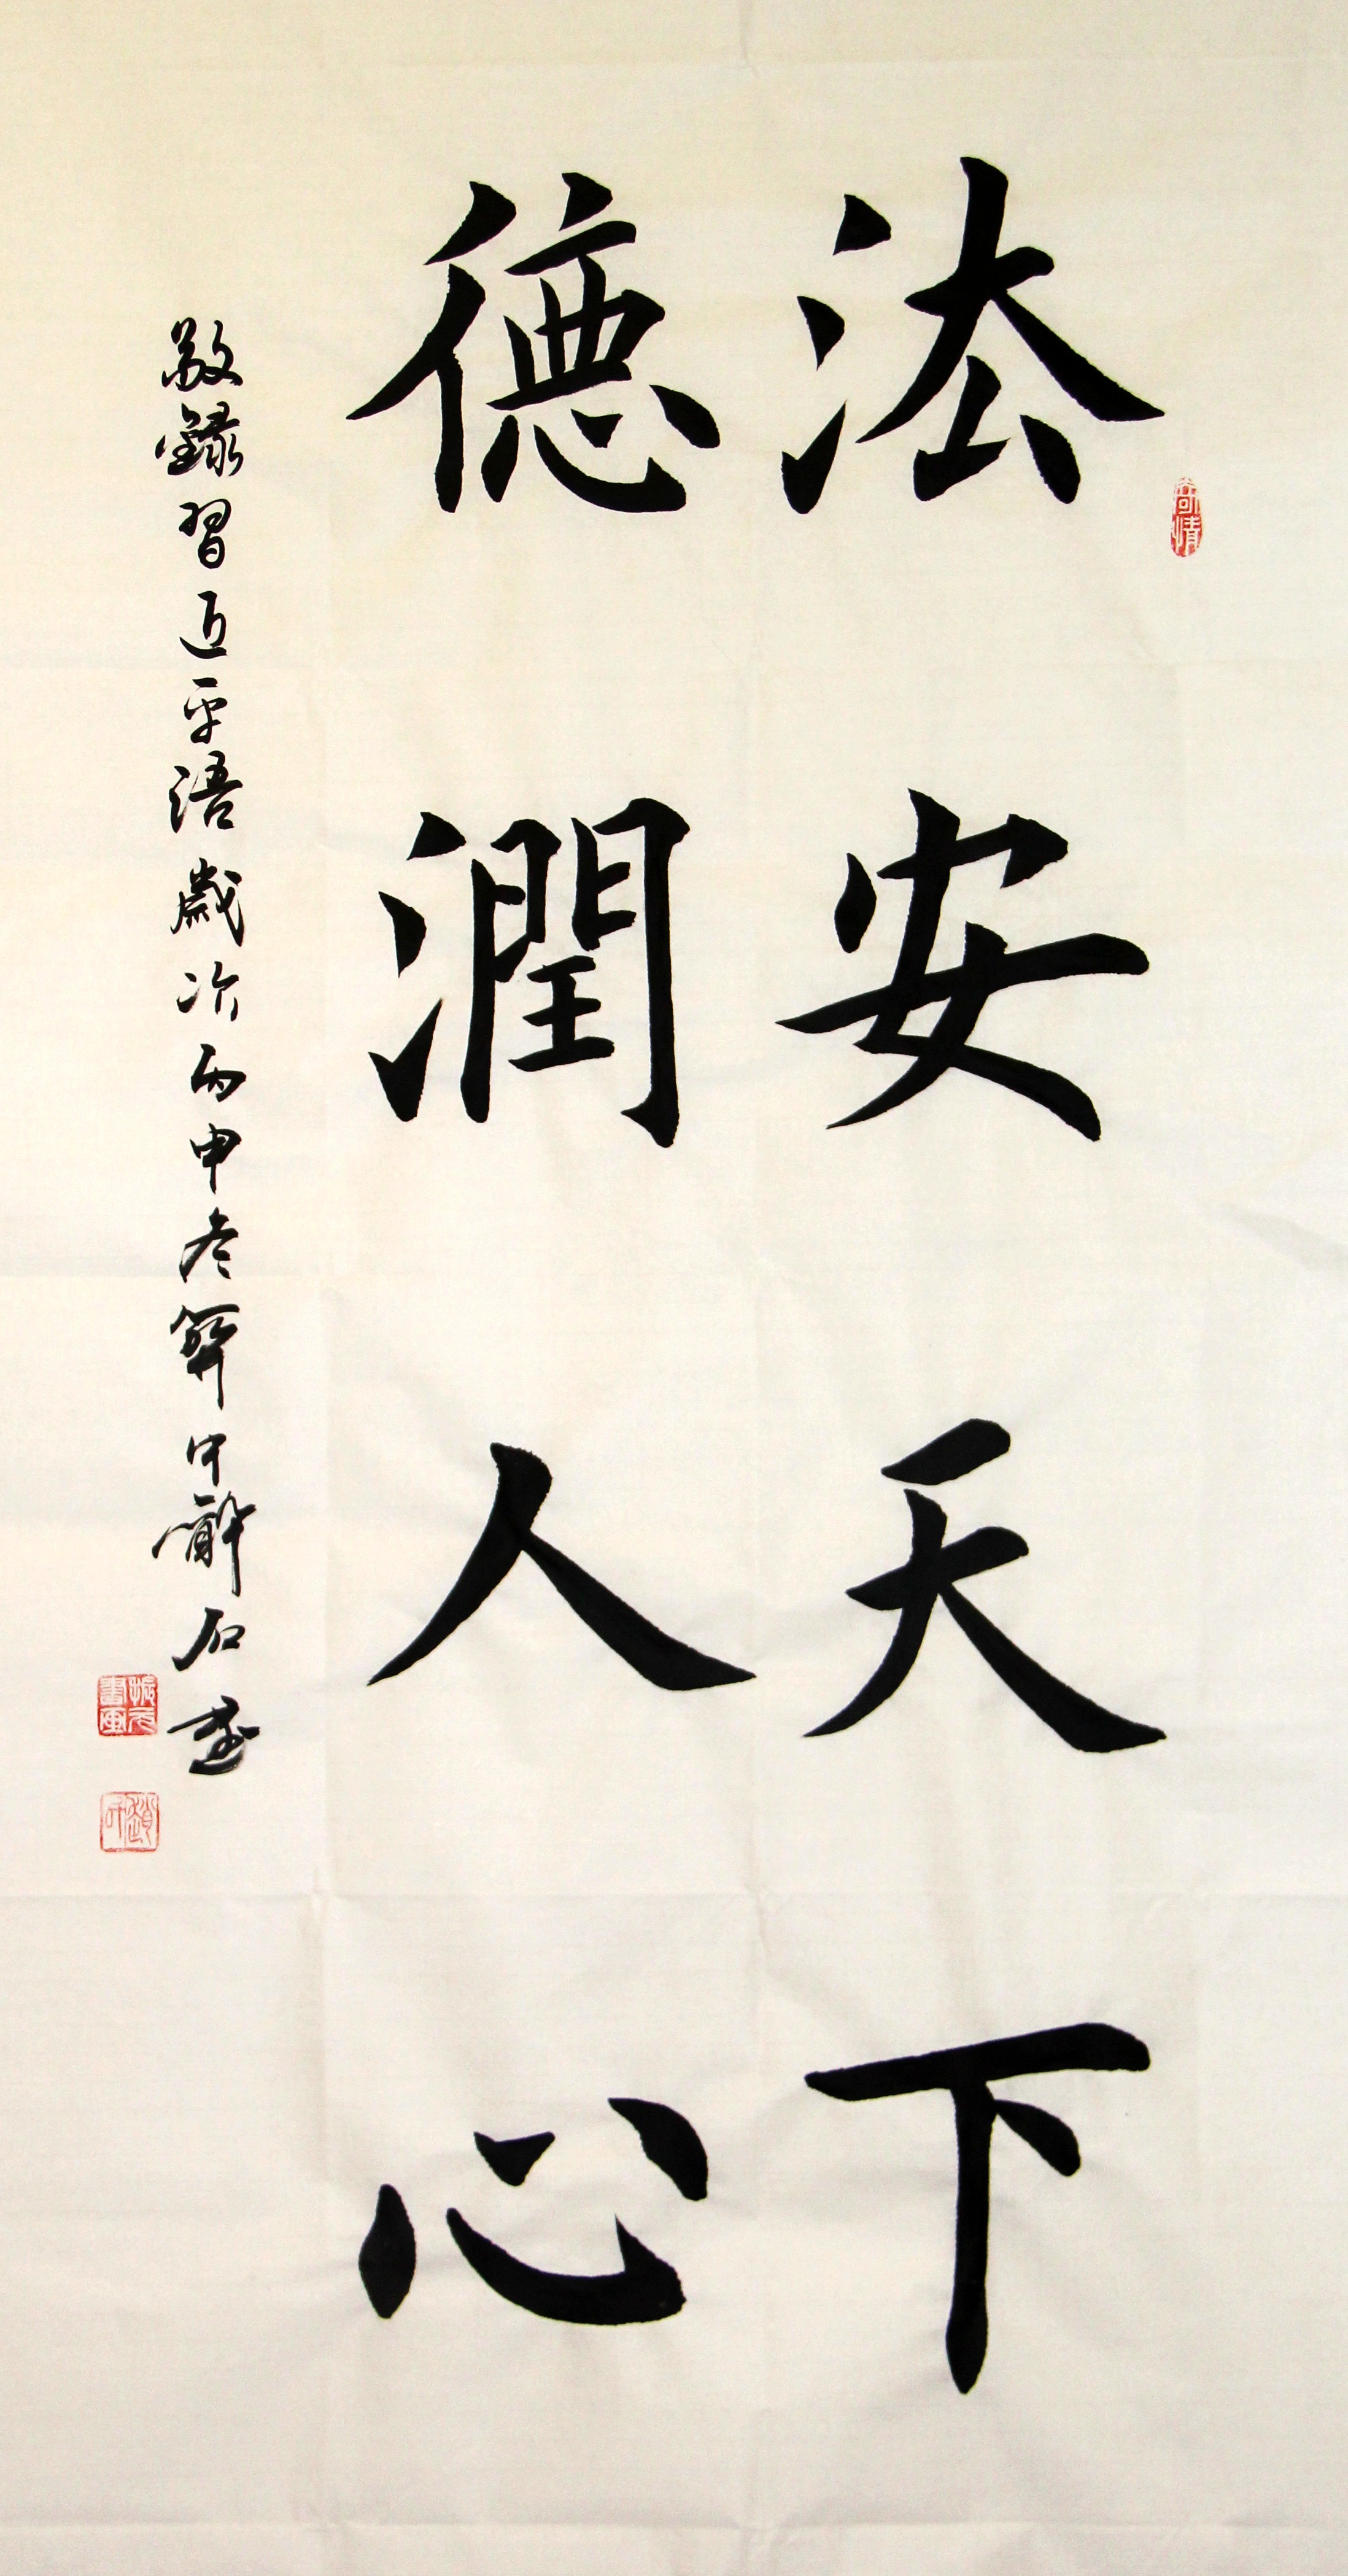 法安天下
德潤人心
敬錄習近平語歲次丙申冬
石書